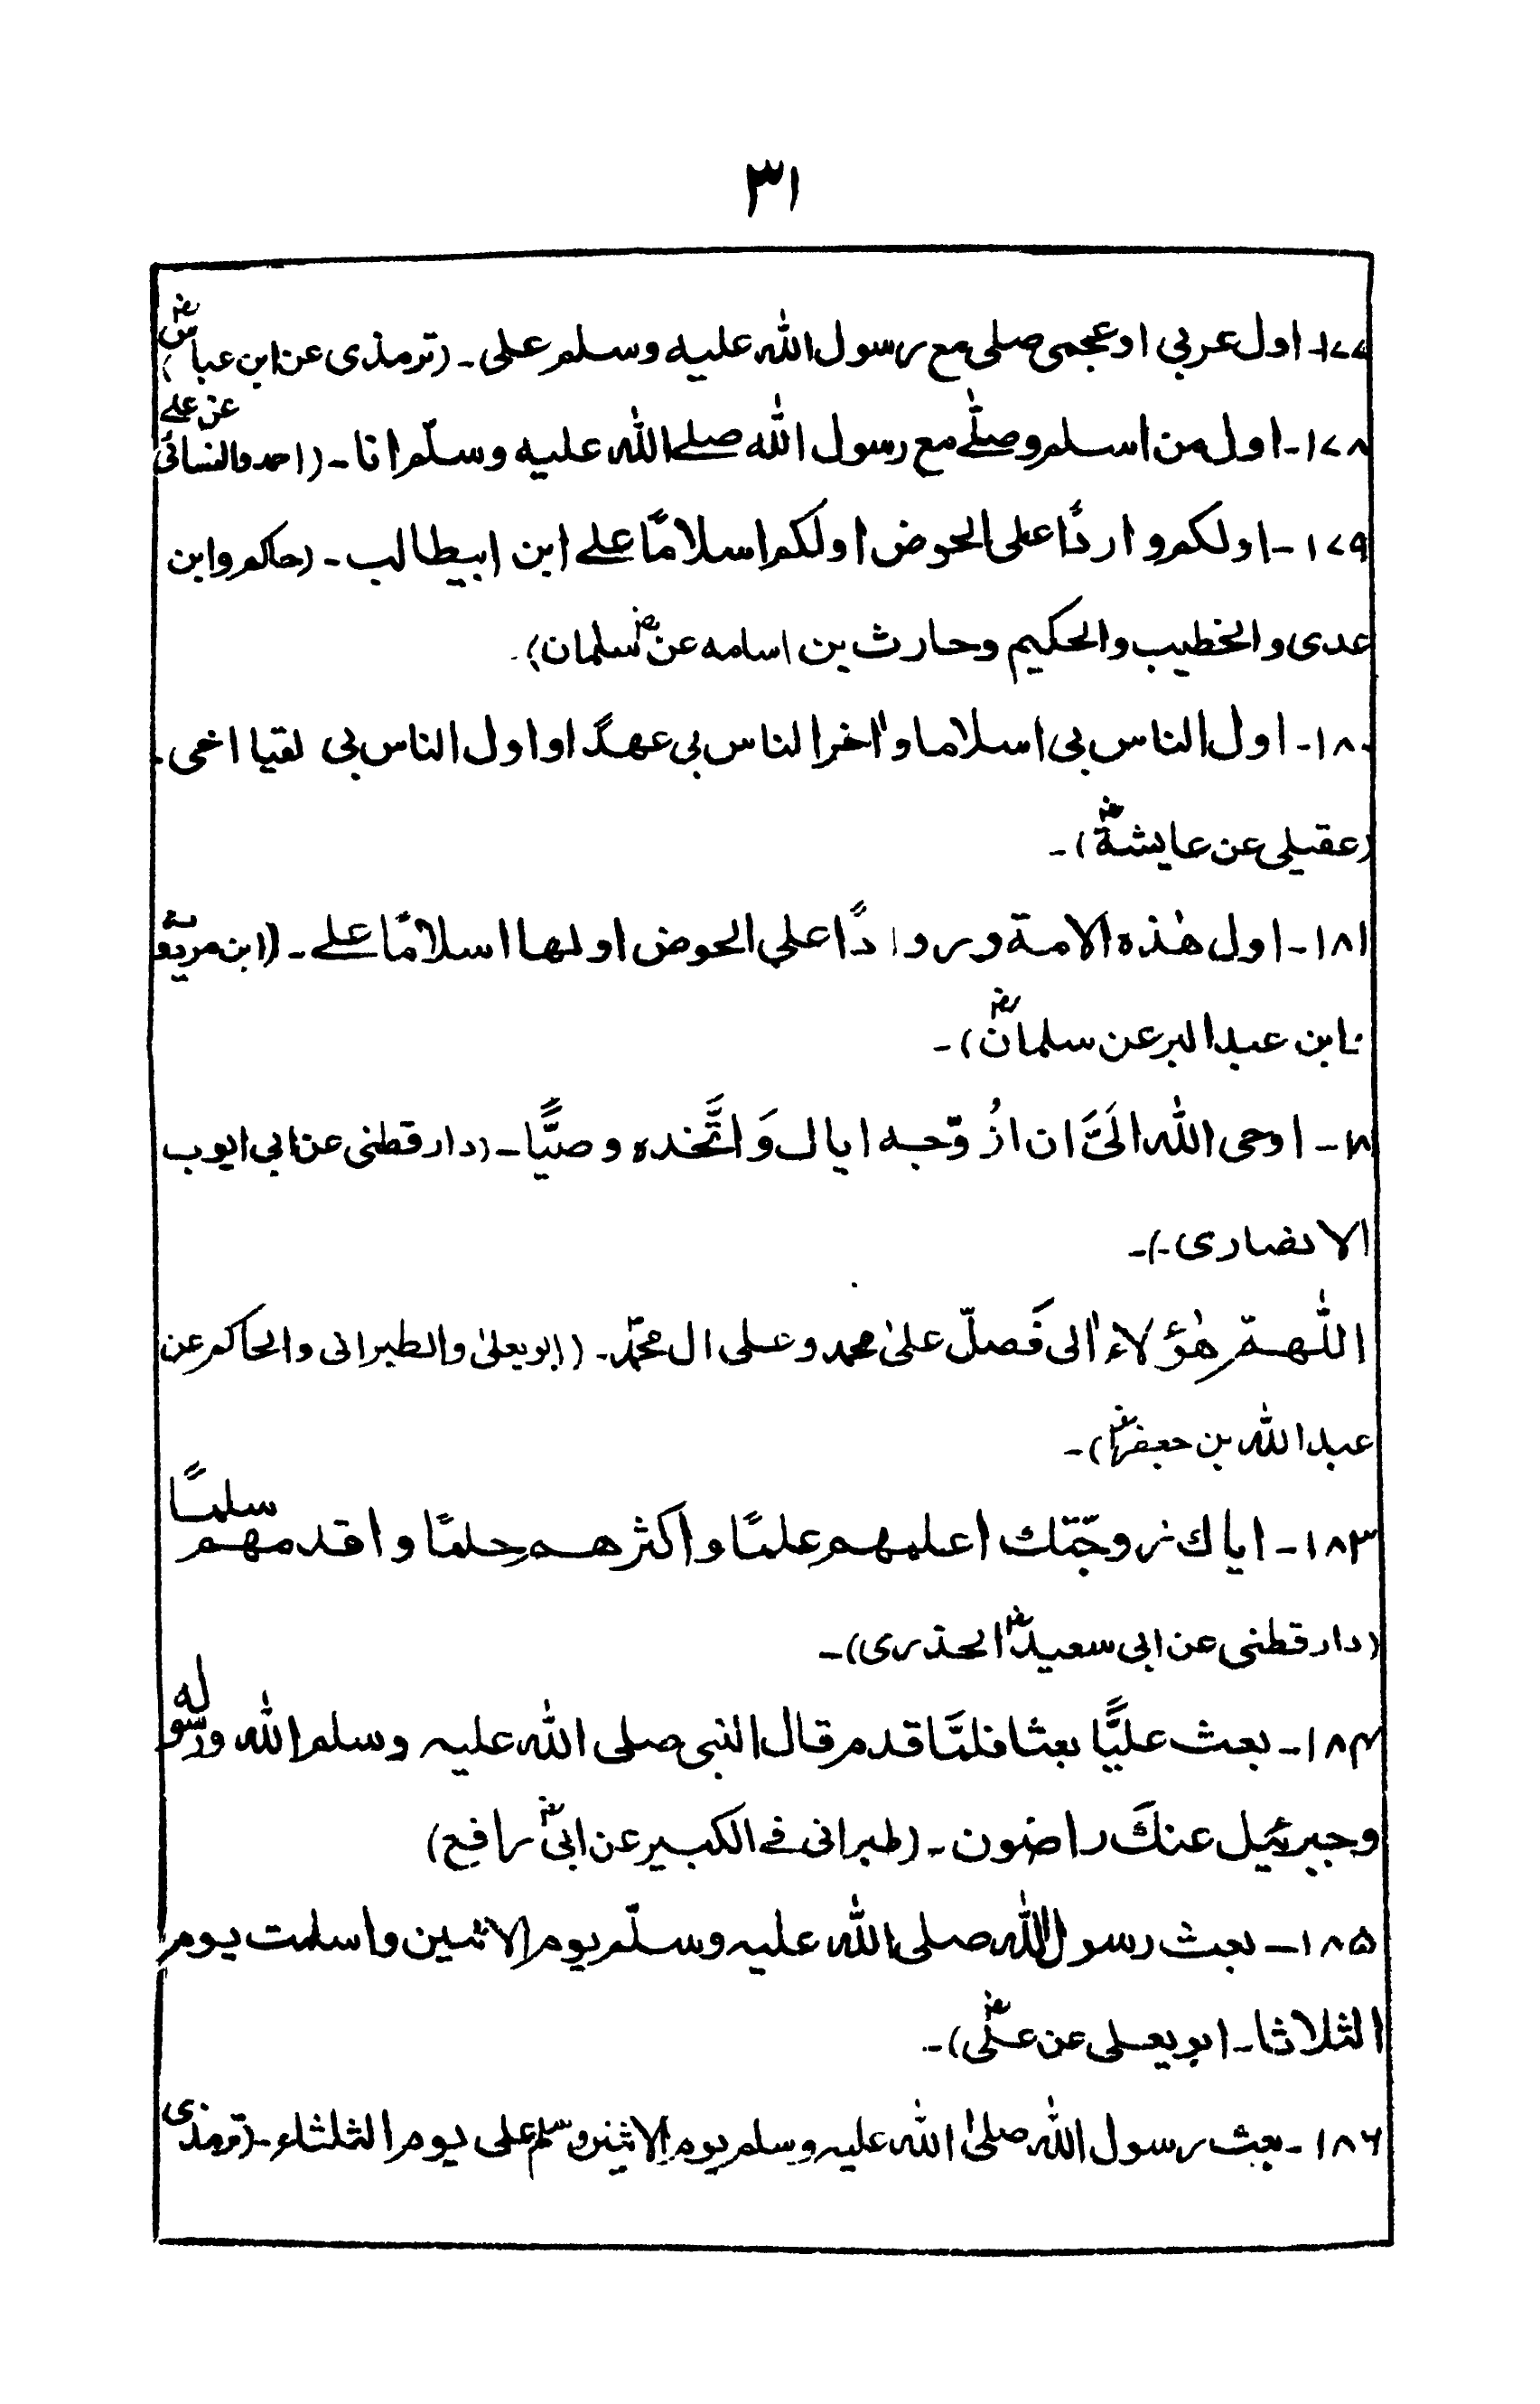 ٣١
١٧٧- اول عربي او عجمى صلى مع رسول الله عليه وسلم على ۔ (ترمذى عن ابن عباسؓ)
١٧٨- اول من اسلم وصلّے مع رسول الله صلے الله عليه وسلّم انا ۔ (احمد والنسائى عن علے
١٧٩- اولكم واردًا على الحوض اولكم اسلامًا علے ابن ابيطالب ۔ (حاكم وابن
عدى والخطيب والحكيم وحارث بن اسامه عنؓ سلمان)
١٨٠- اول الناس بى اسلاما واٰخر الناس بى عهدًا واول الناس بى لقيا اخى ۔
(عقيلى عن عايشةؓ) ۔
١٨١- اول هٰذه الامة ورودًا على الحوض اولها اسلامًا علے ۔ (ابن مردويه
وابن عبد البر عن سلمانؓ) ۔
- اوحى الله الَىَّ ان ازُوّجه اياك وَاتَّخذه وصيًّا ۔ (دار قطنى عن ابى ايوب
الانصارى ۔) ۔
اللّٰهمّ هٰؤلاء اٰلى فَصلّ علىٰ محمد وعلى ال محمّد ۔ (ابو يعلىٰ والطبرانى والحاكم عن
عبد الله بن جعفرؓ) ۔
١٨٣- اياك زوجّتك اعلمهم علمًا واكثرهم حلمًا واقدمهم سلمًا
(دار قطنى عن ابى سعيدؓ الخدرى) ۔
١٨٤- بعث عليًّا بعثا فلمّا قدم قال النبى صلى الله عليه وسلم الله ورسوله
وجبرئيل عنكَ راضون ۔ (طبرانى فے الكبير عن ابىؓ رافع)
١٨٥- بعث رسول الله صلى الله عليه وسلّم يوم الاثنين واسلمت يوم
الثلاثا ۔ ابو يعلى عن علىؓ) ۔
١٨٦- بعث رسول الله صلىٰ الله عليه وسلم يوم الاثنين وسلم على يوم الثلثاء ۔ (ترمذى